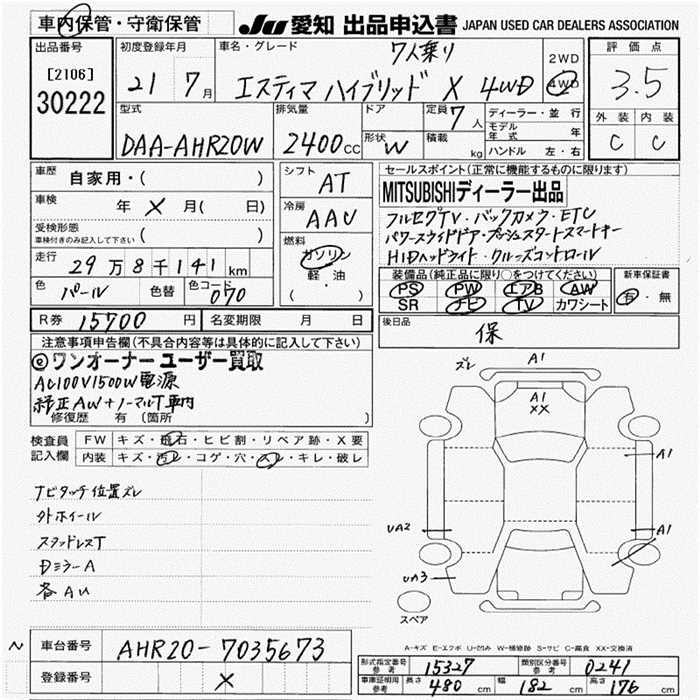 車内保管・守衛保管
JU 愛知 出品申込書 JAPAN USED CAR DEALERS ASSOCIATION
出品番号
[2106]
30222
初度登録年月
21 7月
車名・グレード
7人乗り
エスティマ ハイブリッド X 4WD
2WD
4WD
評価点
3.5
外装 内装
C C
型式
DAA-AHR20W
排気量
2400cc
ドア
形状 W
定員 7人
積載 kg
ディーラー・並行
モデル年式 年
ハンドル 左・右
車歴 自家用・( )
車検 年 X 月( 日)
受検形態
車検付きのみ記入して下さい ( )
走行 29万8千141km
色 パール 色替 色コード 070
シフト AT
冷房 AAC
燃料
ガソリン
軽・油
( )
セールスポイント(正常に機能するものに限ります)
MITSUBISHIディーラー出品
フルセグTV・バックカメラ・ETC
パワースライドドア・プッシュスタートスマートキー
HIDヘッドライト・クルーズコントロール
装備品(純正品に限り○をつけてください)
PS PW エアB AW
SR ナビ TV カワシート
新車保証書
有・無
R券 15700円 名変期限 月 日
後日品
保
注意事項申告欄(不具合内容等は具体的に記入して下さい)
ワンオーナー ユーザー買取
AC100V1500W電源
純正AW+ノーマルT車内
修復歴 有 (箇所 )
検査員記入欄
FW キズ・飛石・ヒビ割・リペア跡・X要
内装 キズ・汚レ・コゲ・穴・スレ・キレ・破レ
ナビタッチ位置ズレ
外ホイール
スタッドレスT
DミラーA
各AU
ズレ A1
A1
XX
A1
A1
UA2
UA3
スペア
A-キズ E-エクボ U-凹み W-補修跡 S-サビ C-腐食 XX-交換済
~ 車台番号 AHR20-7035673
登録番号 X
型式指定番号 参考 15327 類別区分番号 参考 0241
車庫証明用 参考 長さ 480cm 幅 182cm 高さ 176cm